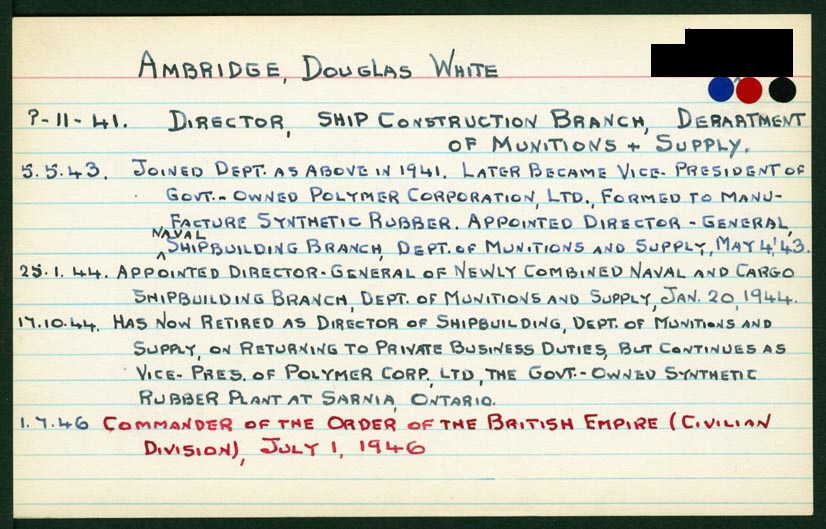 AMBRIDGE, DOUGLAS WHITE
?-11-41. DIRECTOR, SHIP CONSTRUCTION BRANCH, DEPARTMENT
OF MUNITIONS + SUPPLY.
5.5.43. JOINED DEPT. AS ABOVE IN 1941. LATER BECAME VICE-PRESIDENT OF
GOVT.-OWNED POLYMER CORPORATION, LTD., FORMED TO MANU-
FACTURE SYNTHETIC RUBBER. APPOINTED DIRECTOR-GENERAL,
NAVAL
SHIPBUILDING BRANCH, DEPT. OF MUNITIONS AND SUPPLY, MAY 4,'43.
25.1.44. APPOINTED DIRECTOR-GENERAL OF NEWLY COMBINED NAVAL AND CARGO
SHIPBUILDING BRANCH, DEPT. OF MUNITIONS AND SUPPLY, JAN. 20, 1944.
17.10.44. HAS NOW RETIRED AS DIRECTOR OF SHIPBUILDING, DEPT. OF MUNITIONS AND
SUPPLY, ON RETURNING TO PRIVATE BUSINESS DUTIES, BUT CONTINUES AS
VICE-PRES. OF POLYMER CORP. LTD, THE GOVT.-OWNED SYNTHETIC
RUBBER PLANT AT SARNIA, ONTARIO.
1.7.46 COMMANDER OF THE ORDER OF THE BRITISH EMPIRE (CIVILIAN
DIVISION), JULY 1, 1946